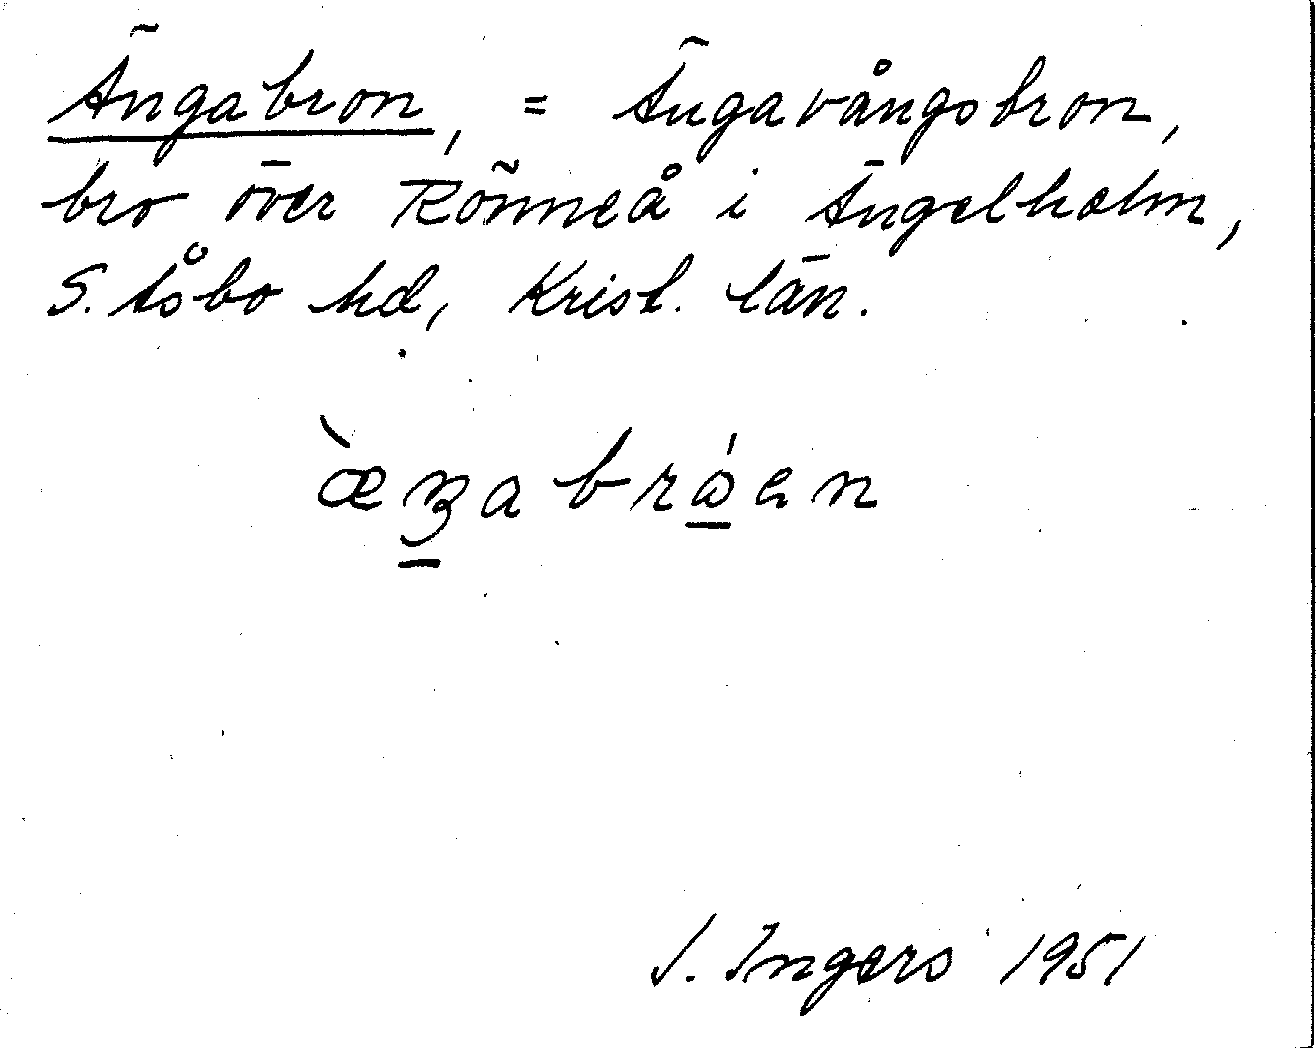 Ängabron, = Ängavångsbron,
bro över Rönneå i Ängelholm,
S. Åsbo hd, Krist. län.
I. Ingers 1951